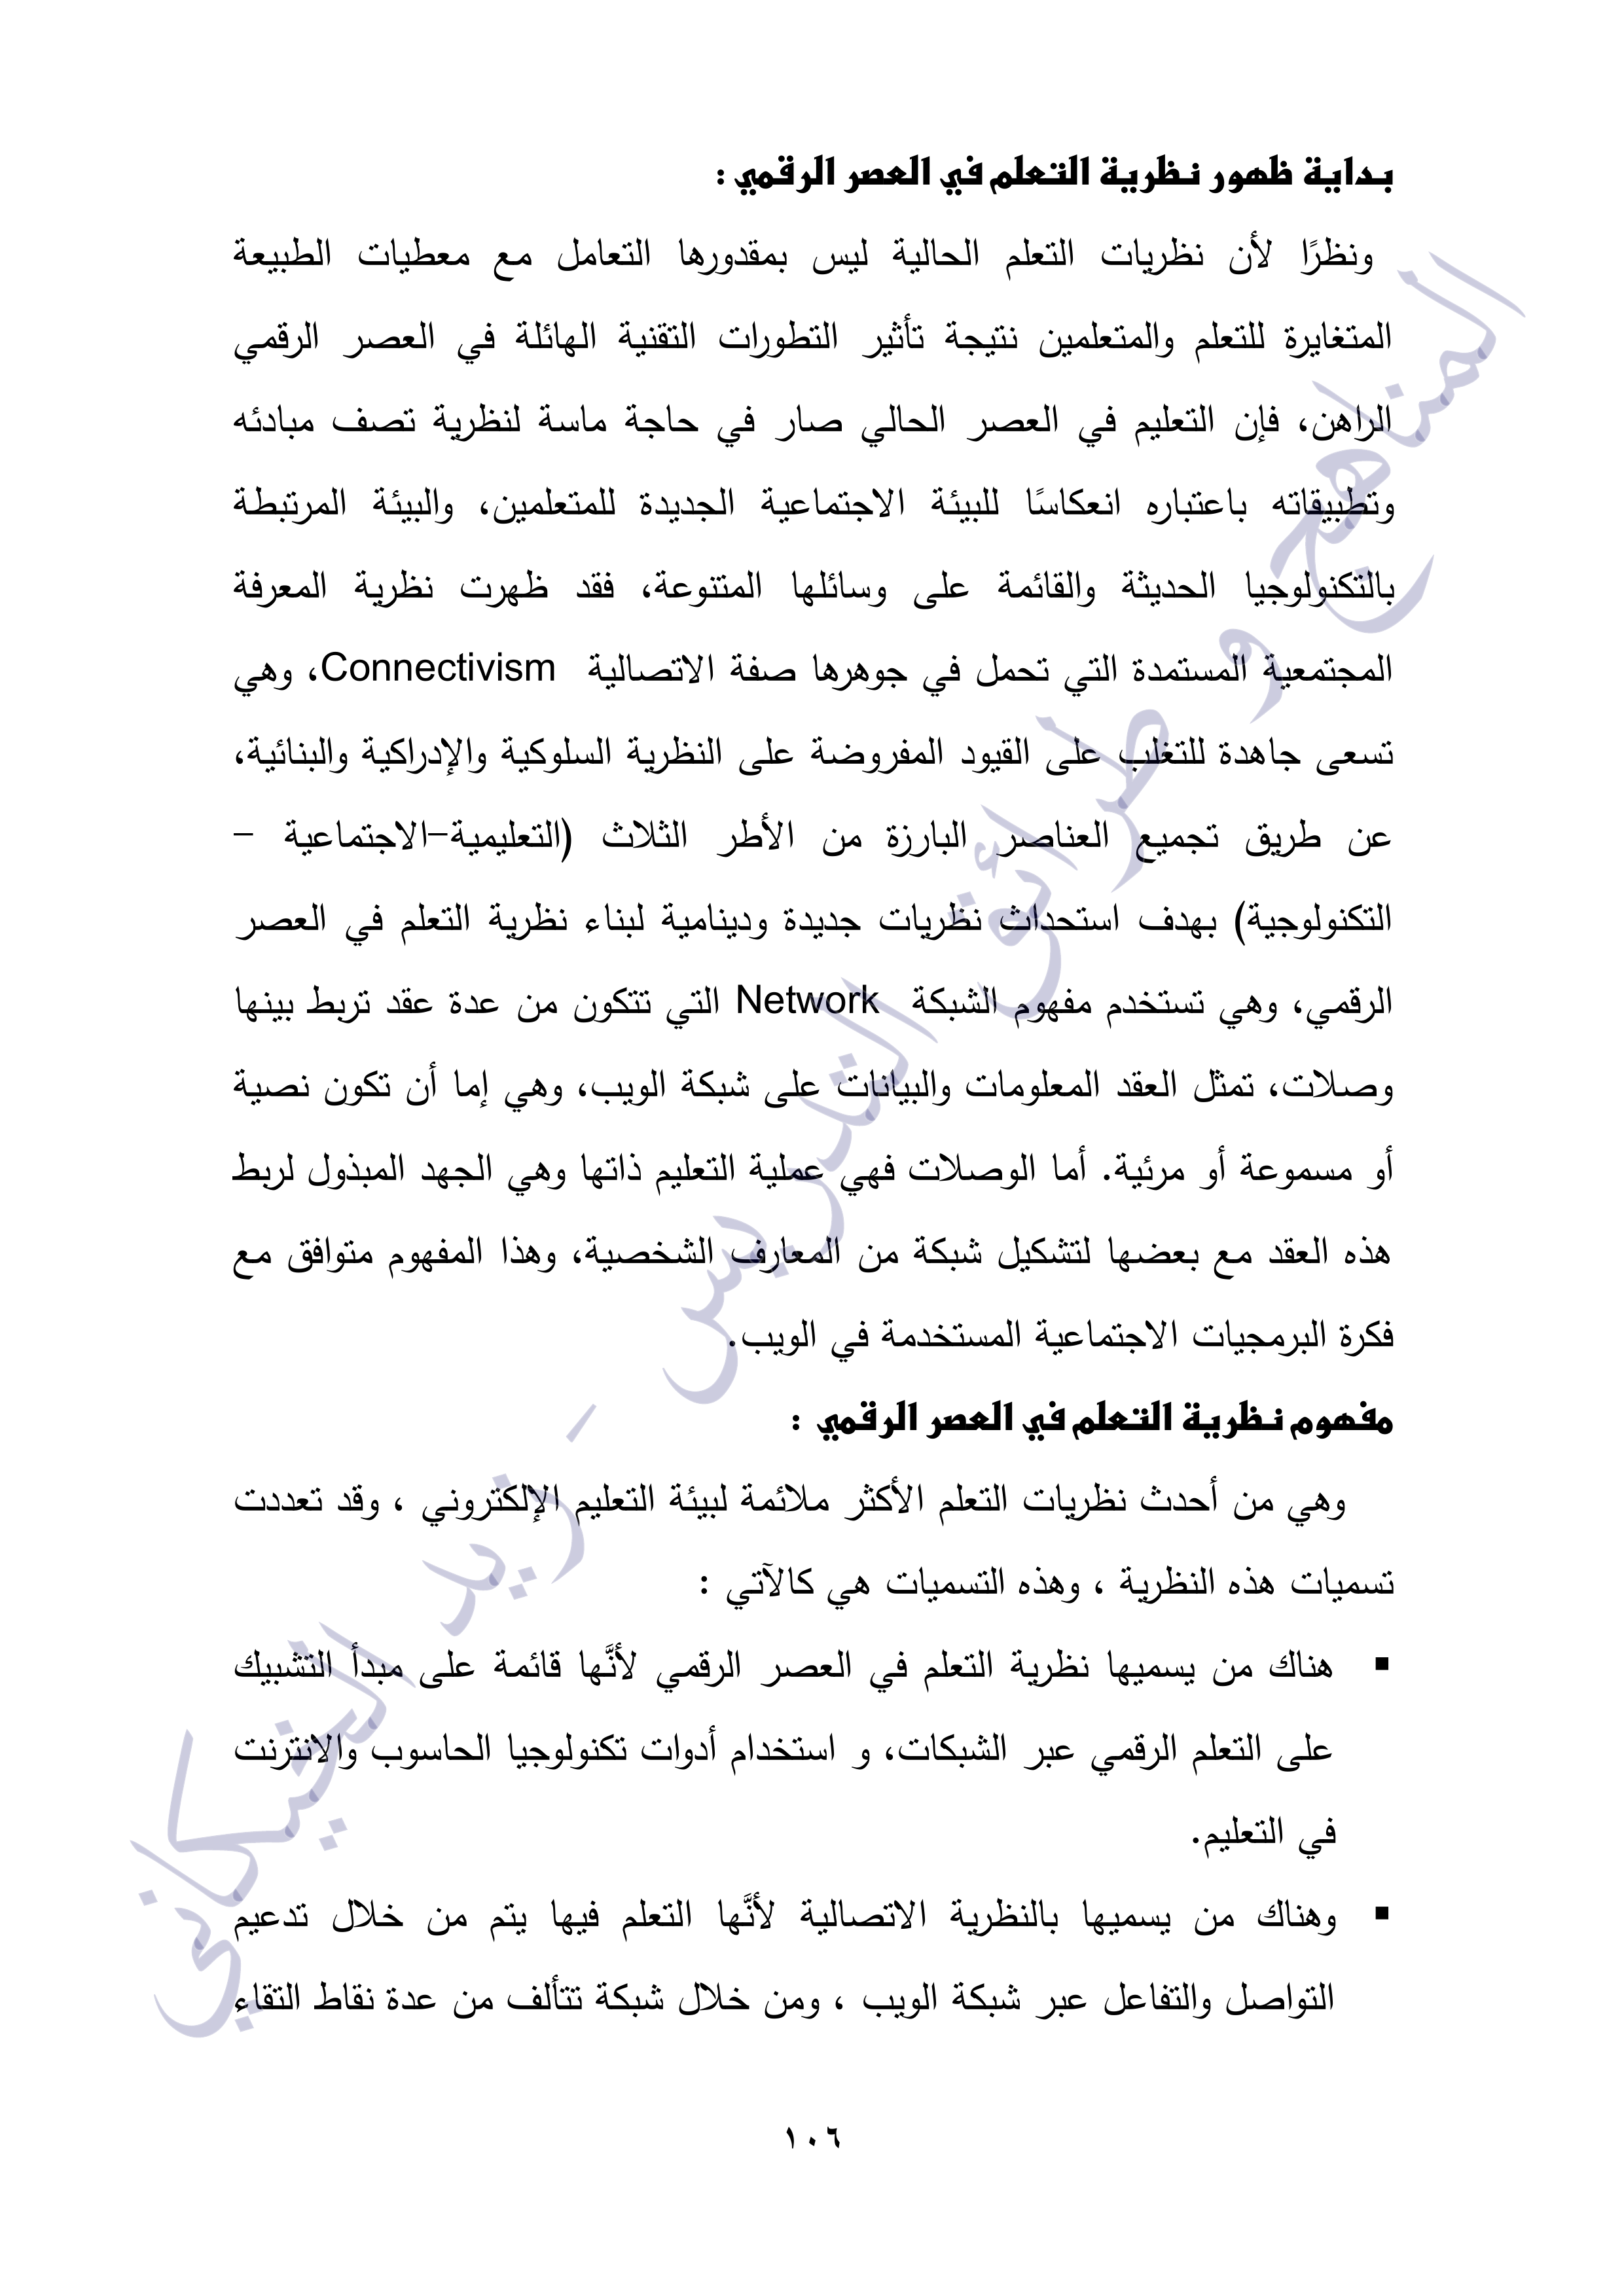 بداية ظهور نظرية التعلم في العصر الرقمي :
ونظرًا لأن نظريات التعلم الحالية ليس بمقدورها التعامل مع معطيات الطبيعة
المتغايرة للتعلم والمتعلمين نتيجة تأثير التطورات التقنية الهائلة في العصر الرقمي
الراهن، فإن التعليم في العصر الحالي صار في حاجة ماسة لنظرية تصف مبادئه
وتطبيقاته باعتباره انعكاسًا للبيئة الاجتماعية الجديدة للمتعلمين، والبيئة المرتبطة
بالتكنولوجيا الحديثة والقائمة على وسائلها المتنوعة، فقد ظهرت نظرية المعرفة
المجتمعية المستمدة التي تحمل في جوهرها صفة الاتصالية Connectivism، وهي
تسعى جاهدة للتغلب على القيود المفروضة على النظرية السلوكية والإدراكية والبنائية،
عن طريق تجميع العناصر البارزة من الأطر الثلاث (التعليمية–الاجتماعية –
التكنولوجية) بهدف استحداث نظريات جديدة ودينامية لبناء نظرية التعلم في العصر
الرقمي، وهي تستخدم مفهوم الشبكة Network التي تتكون من عدة عقد تربط بينها
وصلات، تمثل العقد المعلومات والبيانات على شبكة الويب، وهي إما أن تكون نصية
أو مسموعة أو مرئية. أما الوصلات فهي عملية التعليم ذاتها وهي الجهد المبذول لربط
هذه العقد مع بعضها لتشكيل شبكة من المعارف الشخصية، وهذا المفهوم متوافق مع
فكرة البرمجيات الاجتماعية المستخدمة في الويب.
مفهوم نظرية التعلم في العصر الرقمي :
وهي من أحدث نظريات التعلم الأكثر ملائمة لبيئة التعليم الإلكتروني ، وقد تعددت
تسميات هذه النظرية ، وهذه التسميات هي كالآتي :
▪ هناك من يسميها نظرية التعلم في العصر الرقمي لأنَّها قائمة على مبدأ التشبيك
على التعلم الرقمي عبر الشبكات، و استخدام أدوات تكنولوجيا الحاسوب والانترنت
في التعليم.
▪ وهناك من يسميها بالنظرية الاتصالية لأنَّها التعلم فيها يتم من خلال تدعيم
التواصل والتفاعل عبر شبكة الويب ، ومن خلال شبكة تتألف من عدة نقاط التقاء
١٠٦
المناهج و طرائق التدريس - زيد الخيكاني